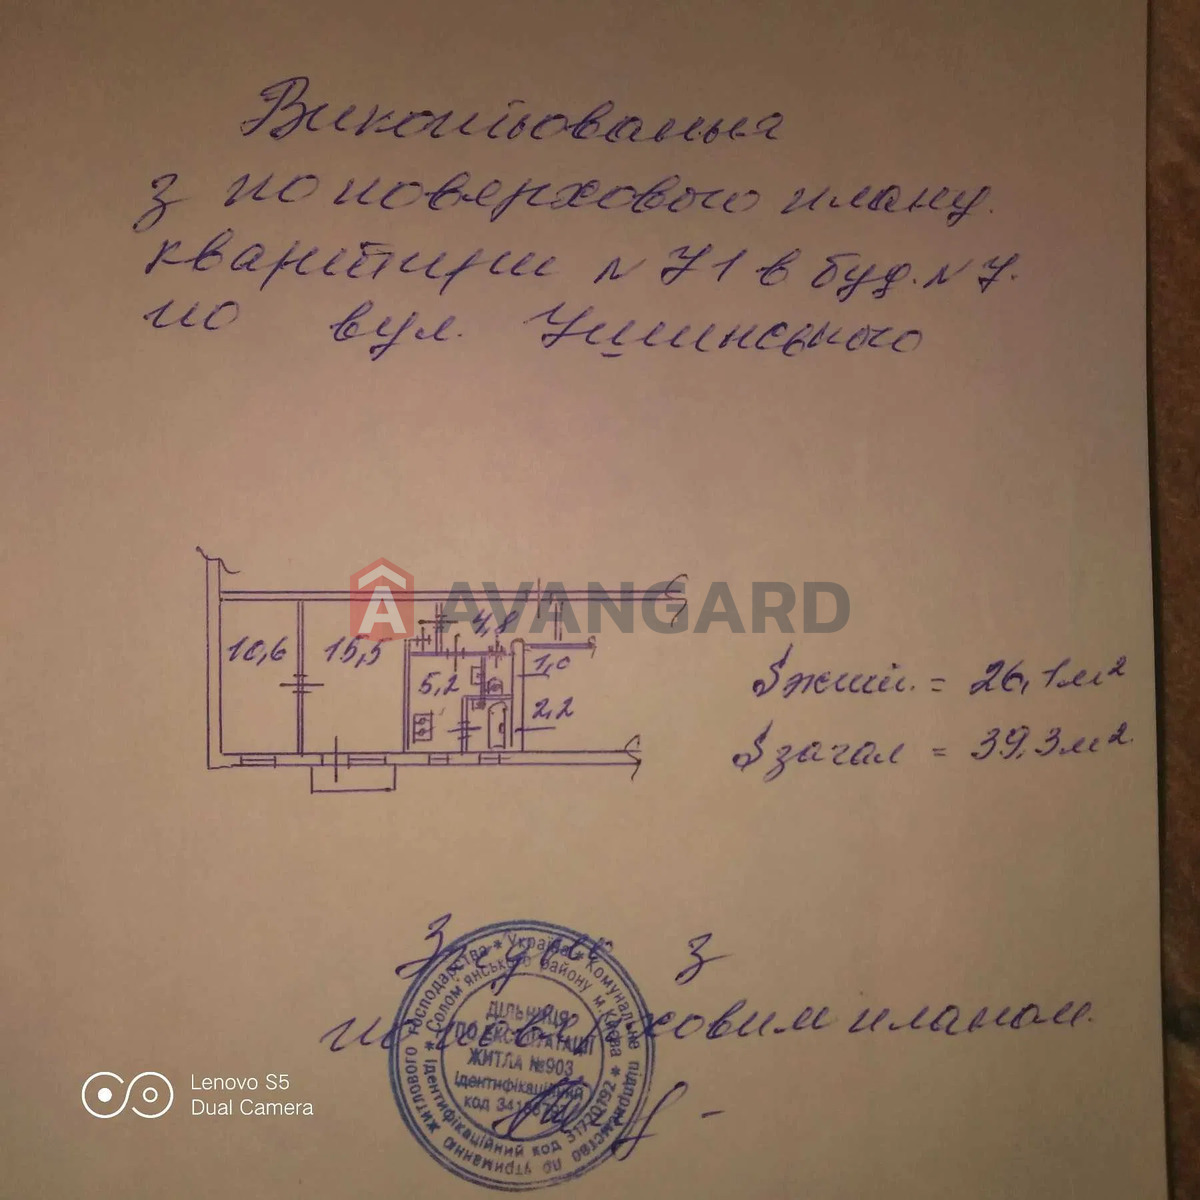 Викопіювання
з по поверхового плану
квартири N 71 в буд. N 7.
по вул. Ушинського
AVANGARD
10,6 15,5 4,8
5,2 1,0
2,2
Sжит. = 26,1 м2
Sзагал = 39,3 м2
Згідно з
поповерховим планом.
* Україна * Комунальне підприємство по утриманню житлового господарства
* Солом'янського району м. Києва * Ідентифікаційний код 31720192
ДІЛЬНИЦЯ
ПО ЕКСПЛУАТАЦІЇ
ЖИТЛА №903
Ідентифікаційний
код
Lenovo S5
Dual Camera